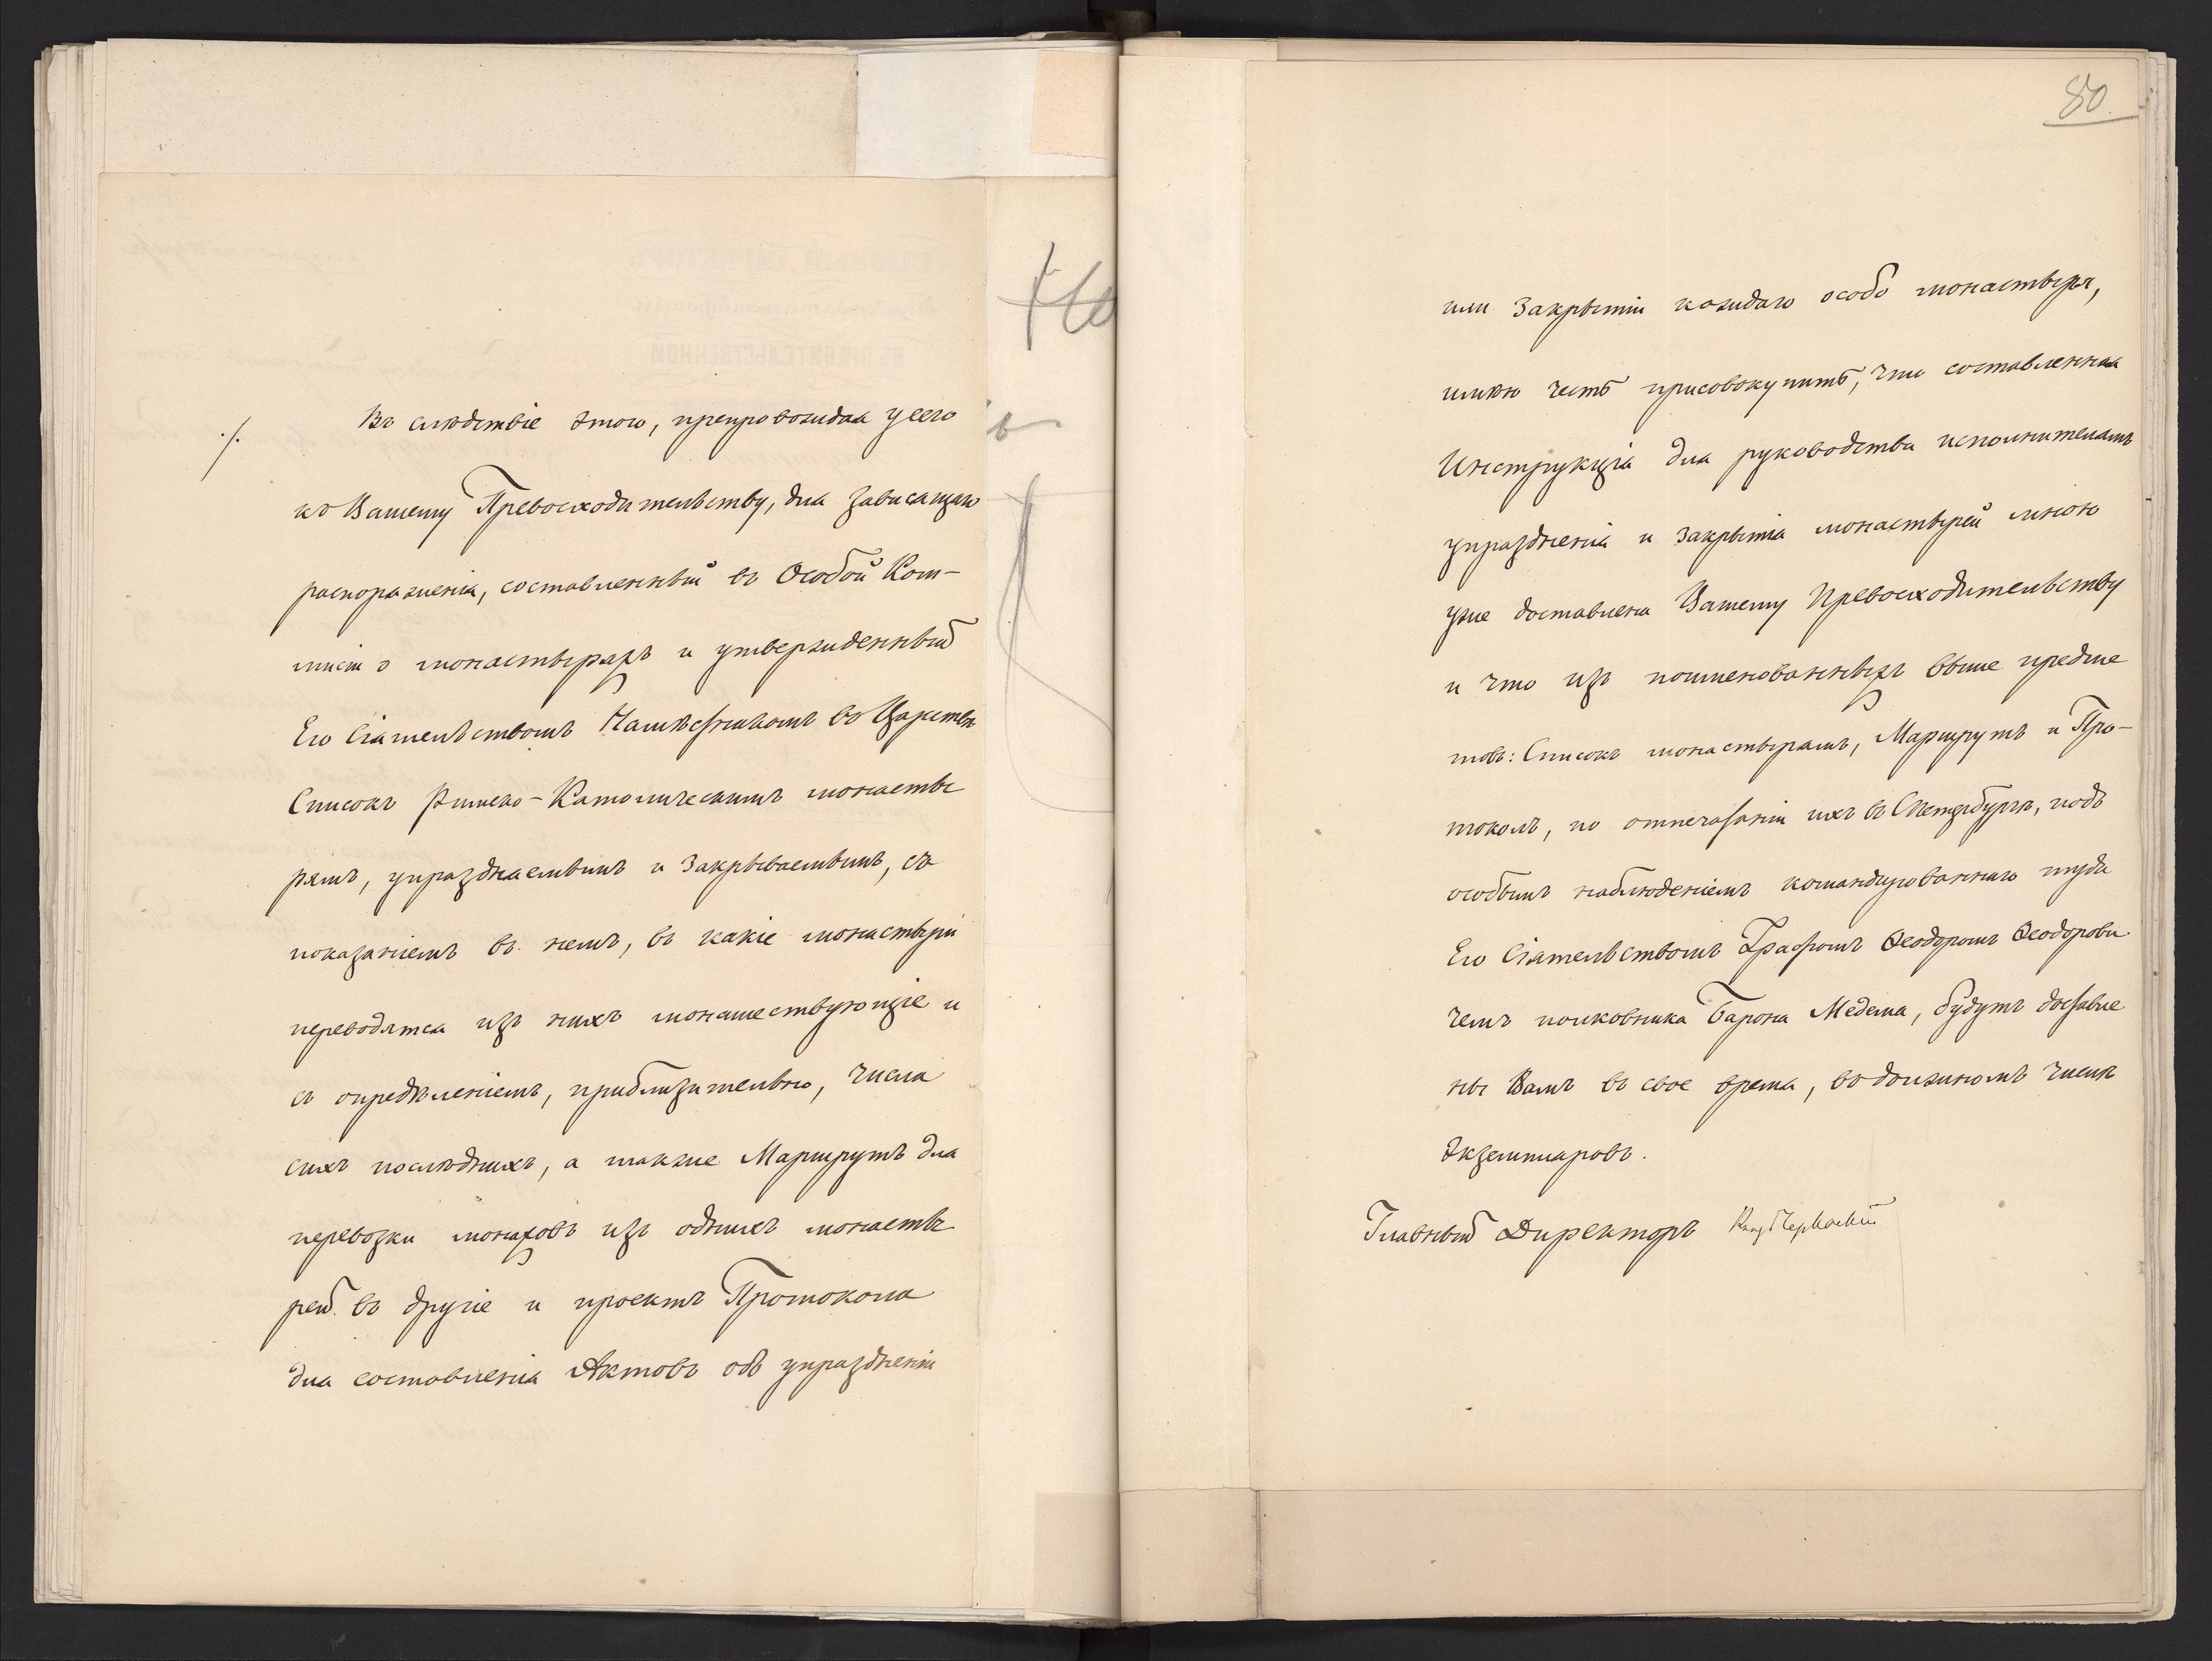 Въ слѣдствіе этого, препровождая у сего
къ Вашему Превосходительству, для зависящаго
распоряженія, составленный въ Особой Ком-
мисіи о монастыряхъ и утвержденный
Его Сіятельствомъ Намѣстникомъ въ Царствѣ
Списокъ Римско-Католическимъ монасты
рямъ, упраздняемымъ и закрываемымъ, съ
показаніемъ въ немъ, въ какіе монастыри
переводятся изъ нихъ монашествующіе и
съ опредѣленіемъ, приблизительно, числа
сихъ послѣднихъ, а также Маршрутъ для
перевозки монаховъ изъ однихъ монасты
рей въ другіе и проектъ Протокола
для составленія Актовъ объ упраздненіи
80
или закрытіи каждаго особо монастыря,
имѣю честь присовокупить, что составленная
Инструкція для руководства исполнителямъ
упраздненія и закрытія монастырей мною
уже доставлена Вашему Превосходительству
и что изъ поименованныхъ выше предме
товъ: Списокъ монастырямъ, Маршрутъ и Про-
токолъ, по отпечатаніи ихъ въ СПетербургѣ, подъ
особымъ наблюденіемъ командированнаго туда
Его Сіятельствомъ Графомъ Ѳеодоромъ Ѳеодорови
чемъ полковника Барона Медема, будутъ доставле
ны Вамъ въ свое время, въ должномъ числѣ
экземпляровъ.
Главный Директоръ